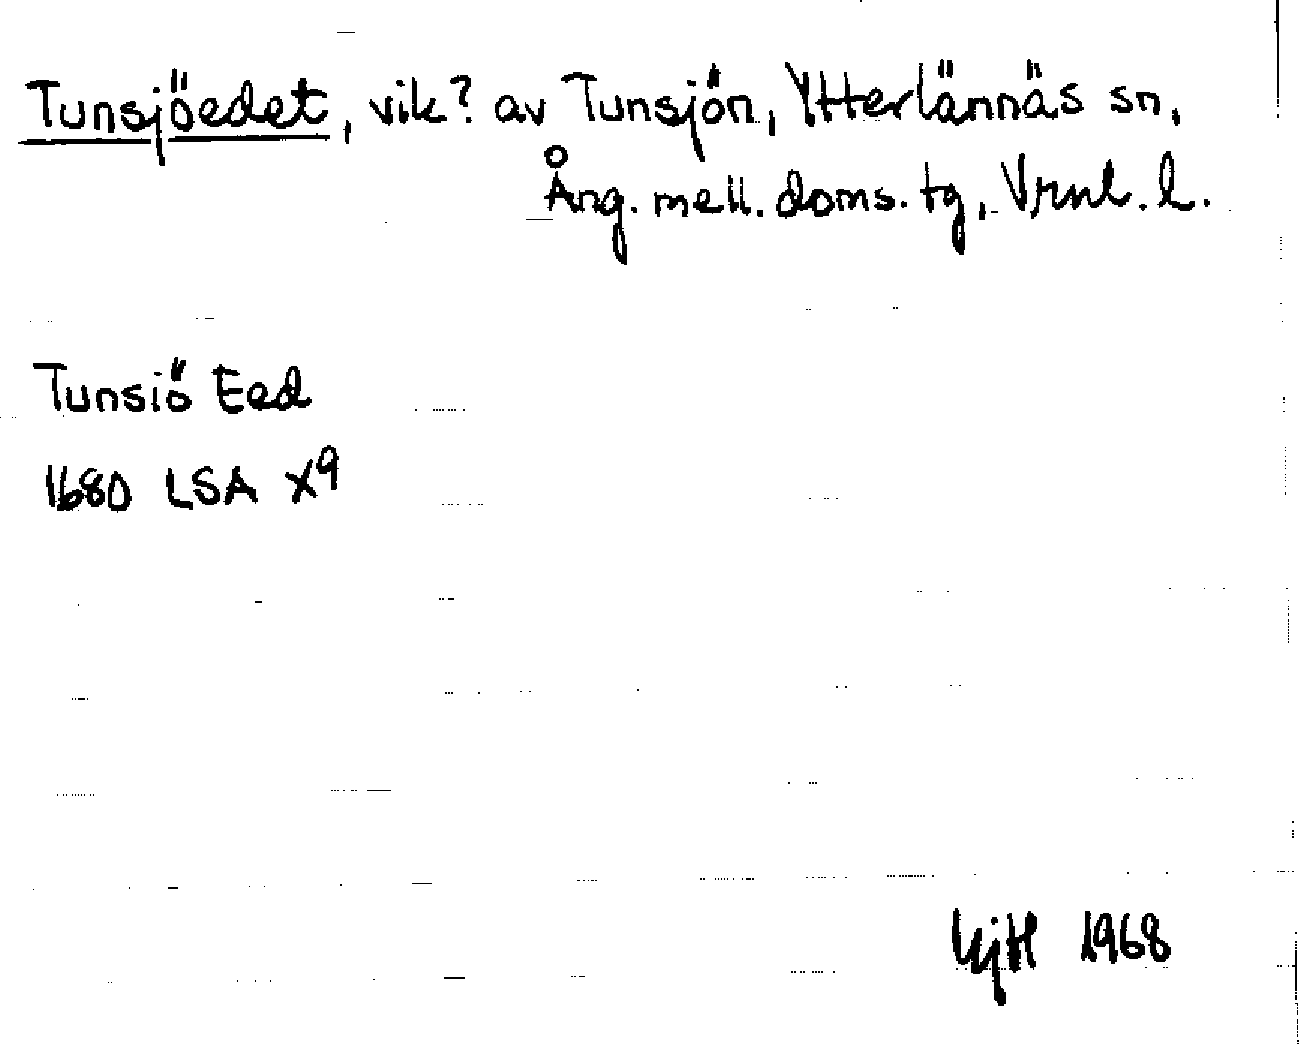 Tunsjöedet, vik? av Tunsjön, Ytterlännäs sn,
Ång. mell. doms. tg, Vrnl. l.
Tunsiö Eed
1680 LSA X9
1968